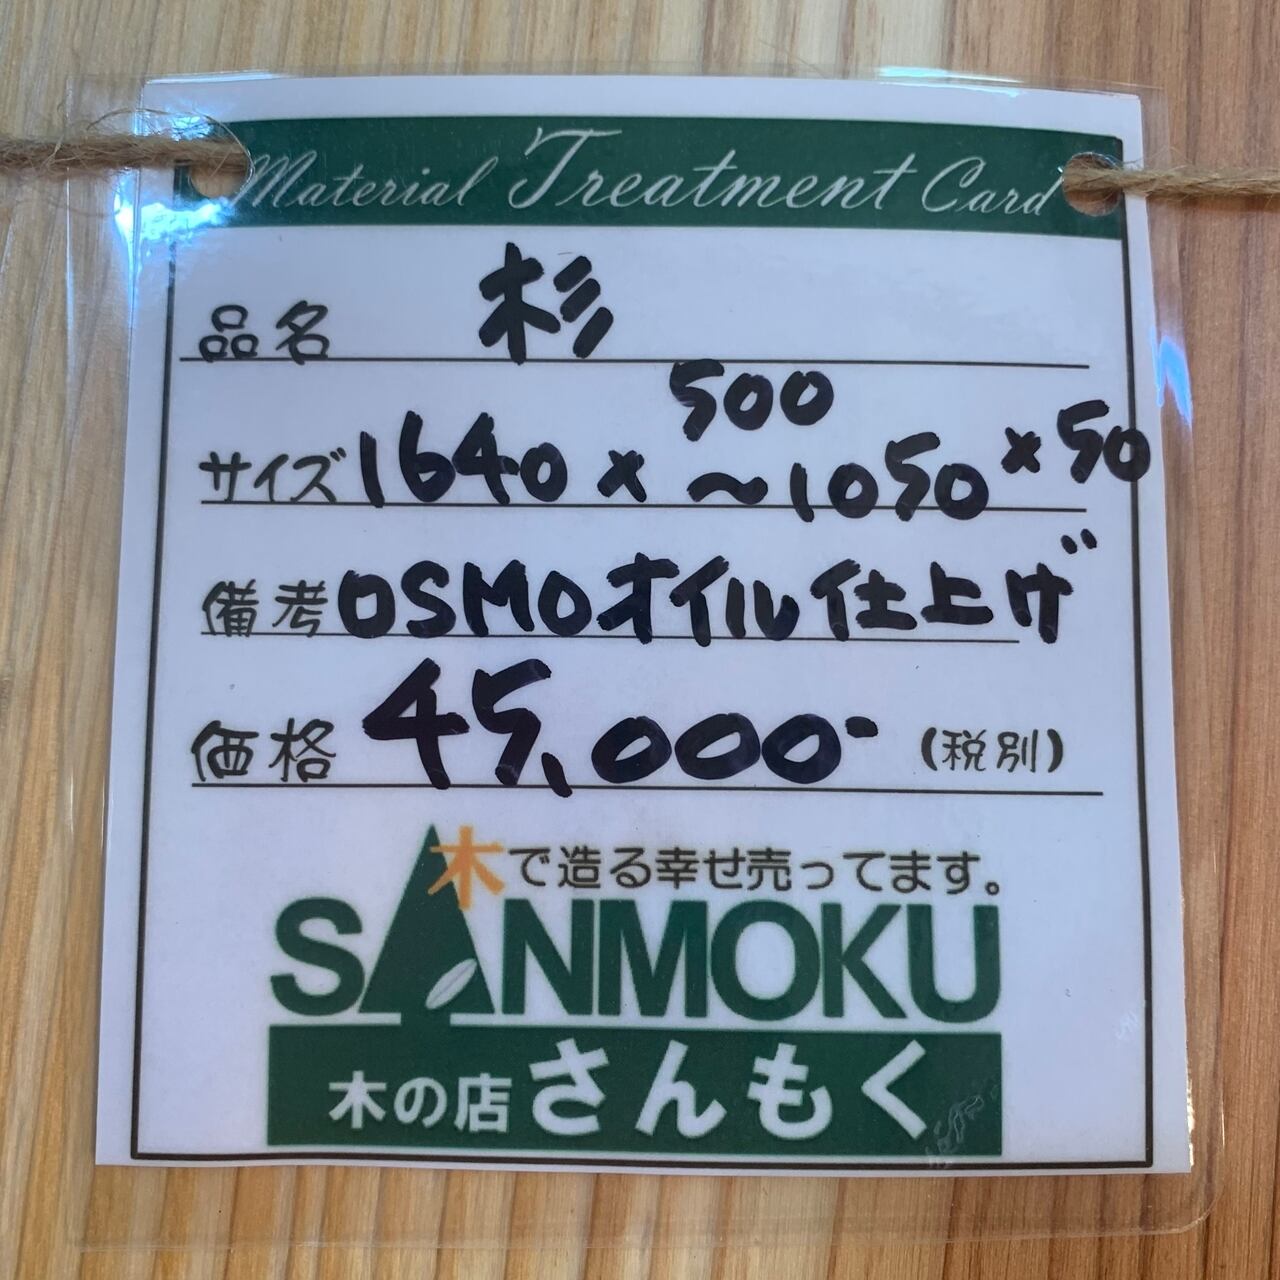 Material Treatment Card
品名 杉
サイズ 1640 × 500 ～1050 × 50
備考 OSMOオイル仕上げ
価格 45,000- (税別)
木で造る幸せ売ってます。
SANMOKU
木の店 さんもく